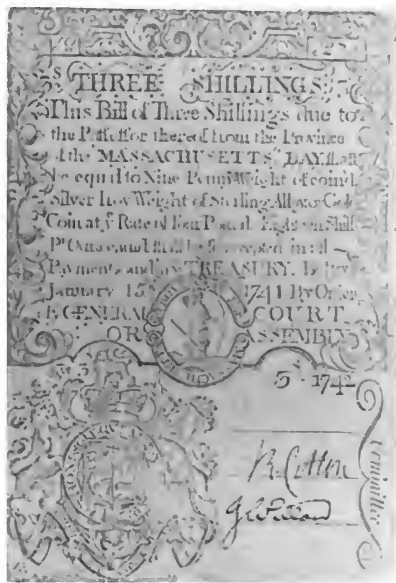 THREE SHILLINGS
This Bill of Three Shillings due to
the Possessor thereof from the Province
of the MASSACHUSETTS BAY shall
be equal to Nine Penny Weight of coin'd
Silver Troy Weight of Sterling Alloy or Gold
Coin at ye Rate of Four Pounds Eighteen Shill
Pr Ounce and shall be so accepted in all
Payments and in ye TREASURY.
January 15 1741 By Order
GENERAL COURT
OR ASSEMBLY
3s 1742
R. Cotton